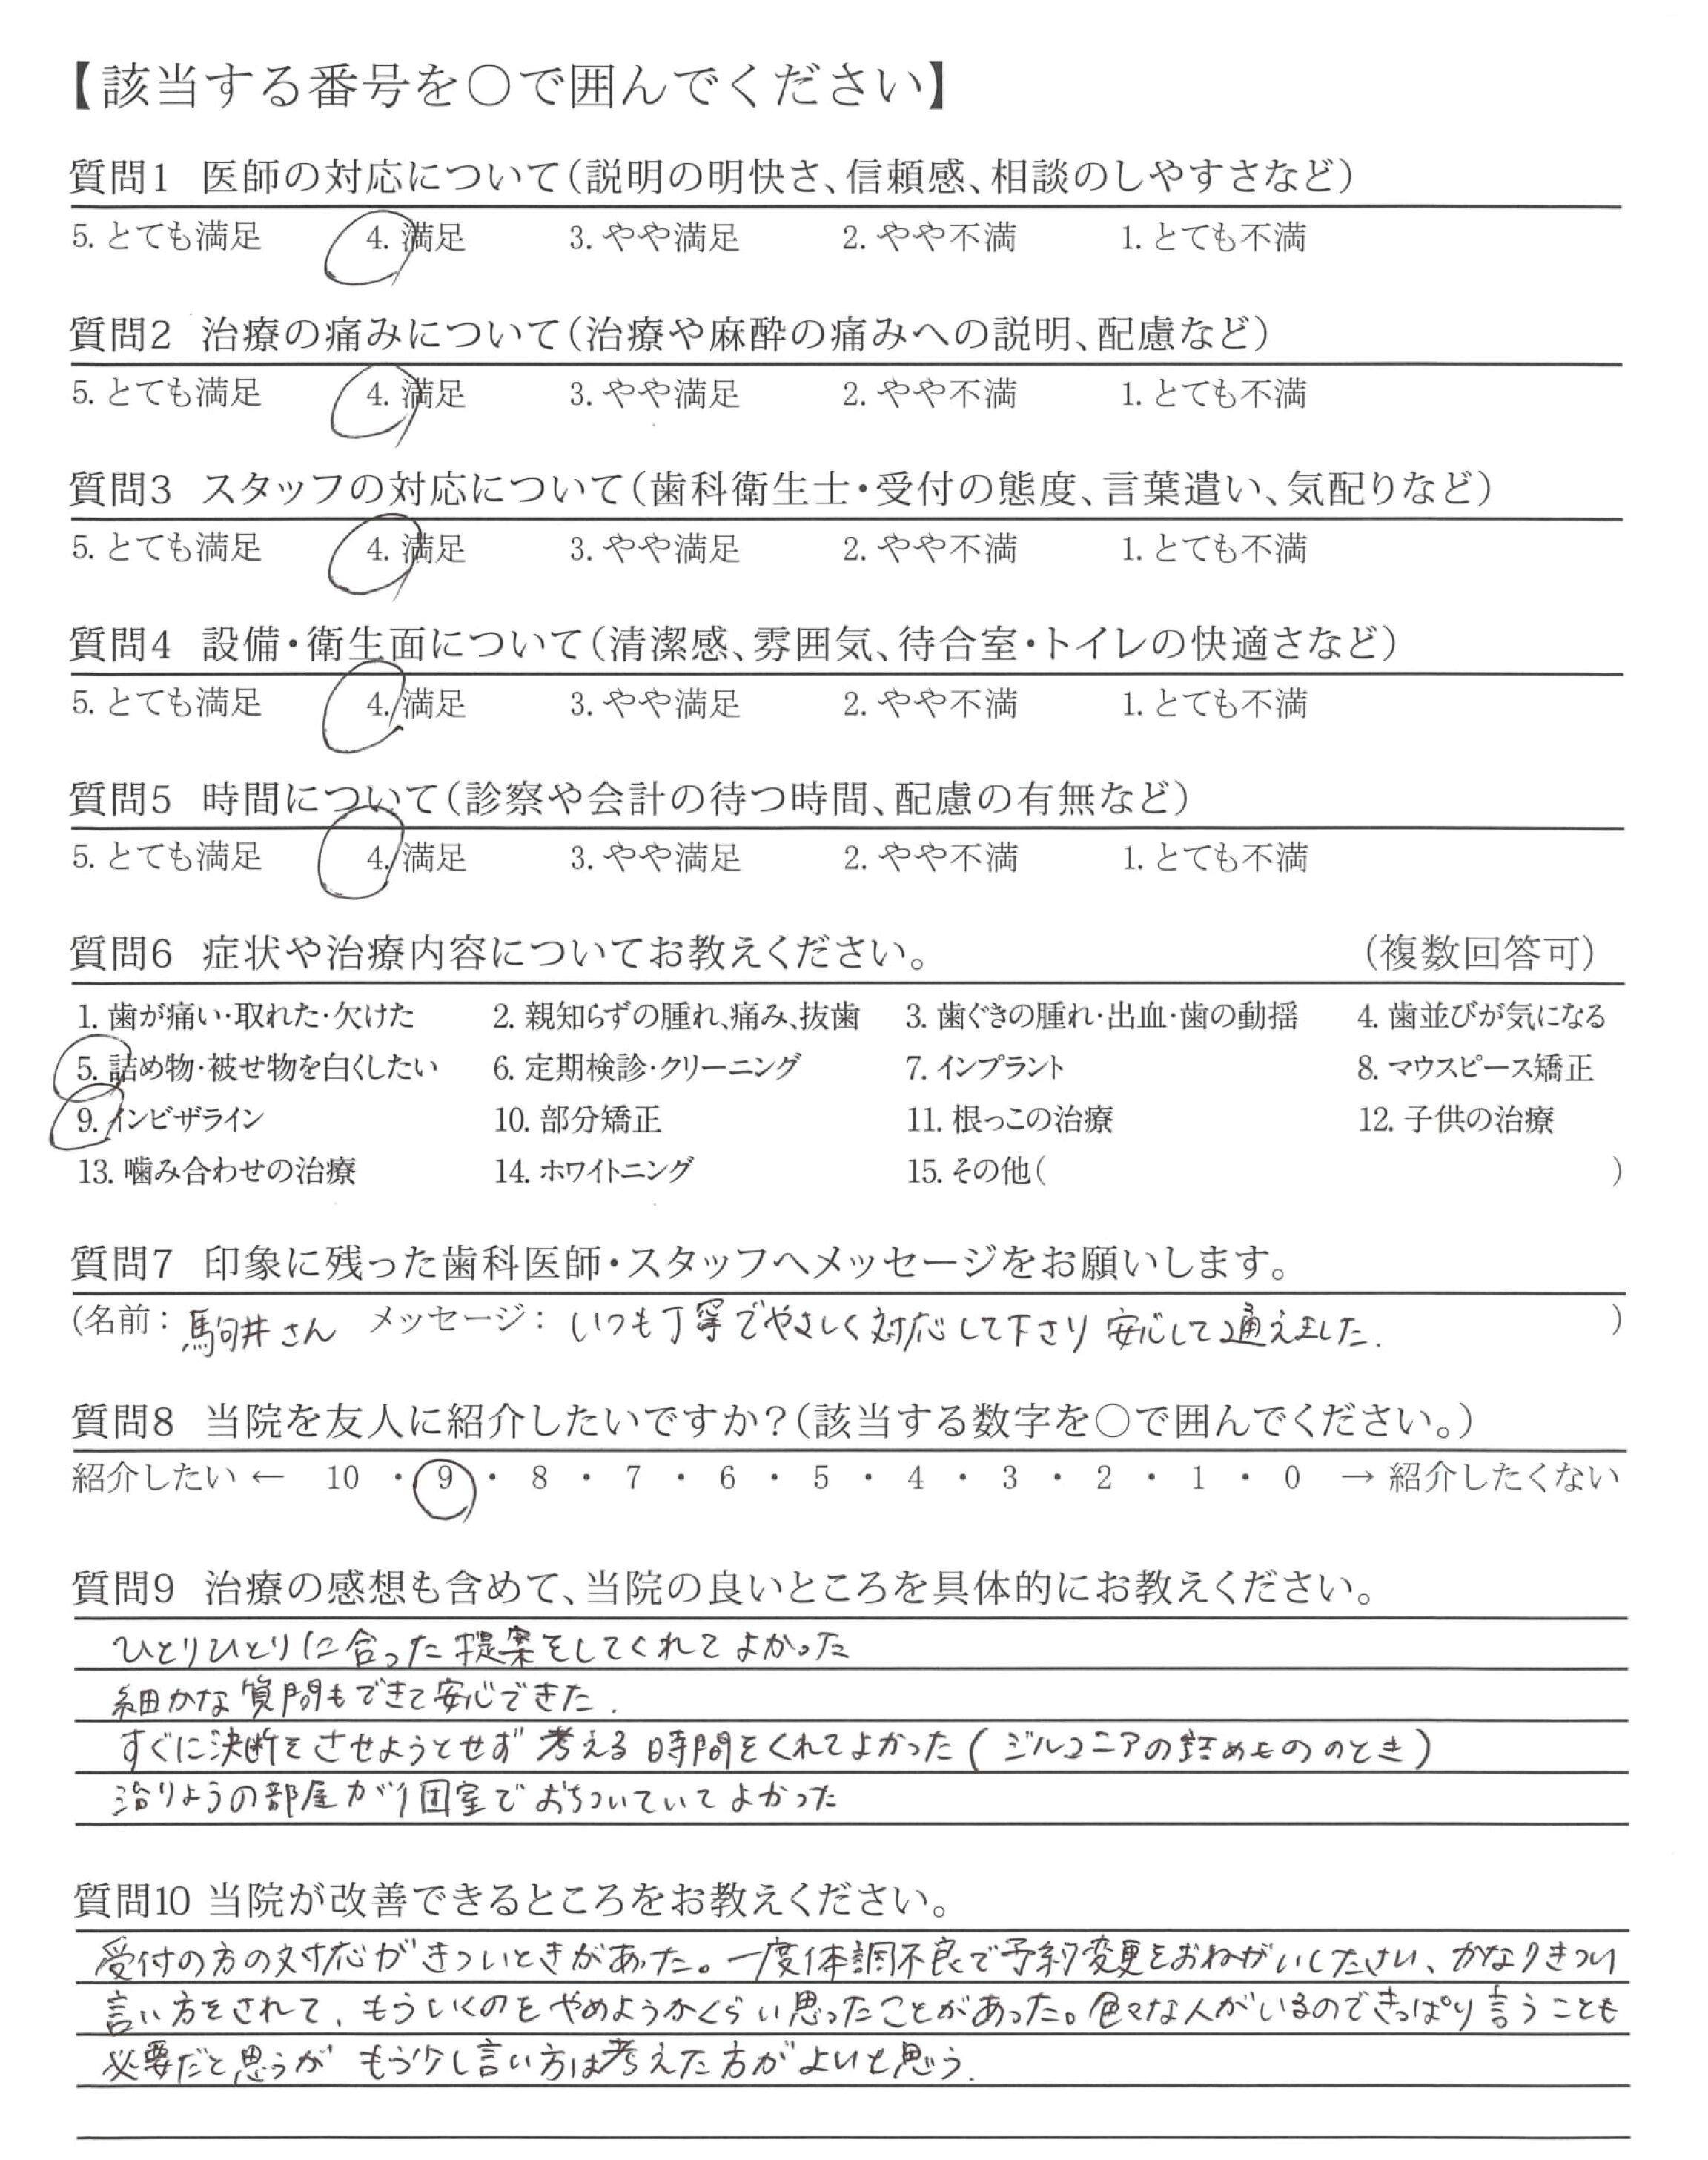 【該当する番号を○で囲んでください】
質問1 医師の対応について(説明の明快さ、信頼感、相談のしやすさなど)
5. とても満足 4. 満足 3. やや満足 2. やや不満 1. とても不満
質問2 治療の痛みについて(治療や麻酔の痛みへの説明、配慮など)
5. とても満足 4. 満足 3. やや満足 2. やや不満 1. とても不満
質問3 スタッフの対応について(歯科衛生士・受付の態度、言葉遣い、気配りなど)
5. とても満足 4. 満足 3. やや満足 2. やや不満 1. とても不満
質問4 設備・衛生面について(清潔感、雰囲気、待合室・トイレの快適さなど)
5. とても満足 4. 満足 3. やや満足 2. やや不満 1. とても不満
質問5 時間について(診察や会計の待つ時間、配慮の有無など)
5. とても満足 4. 満足 3. やや満足 2. やや不満 1. とても不満
質問6 症状や治療内容についてお教えください。 (複数回答可)
1. 歯が痛い・取れた・欠けた 2. 親知らずの腫れ、痛み、抜歯 3. 歯ぐきの腫れ・出血・歯の動揺 4. 歯並びが気になる
5. 詰め物・被せ物を白くしたい 6. 定期検診・クリーニング 7. インプラント 8. マウスピース矯正
9. インビザライン 10. 部分矯正 11. 根っこの治療 12. 子供の治療
13. 噛み合わせの治療 14. ホワイトニング 15. その他( )
質問7 印象に残った歯科医師・スタッフへメッセージをお願いします。
(名前: 駒井さん メッセージ: いつも丁寧でやさしく対応して下さり 安心して通えました. )
質問8 当院を友人に紹介したいですか?(該当する数字を○で囲んでください。)
紹介したい ← 10 ・ 9 ・ 8 ・ 7 ・ 6 ・ 5 ・ 4 ・ 3 ・ 2 ・ 1 ・ 0 → 紹介したくない
質問9 治療の感想も含めて、当院の良いところを具体的にお教えください。
ひとりひとりに合った提案をしてくれてよかった
細かな質問もできて安心できた.
すぐに決断をさせようとせず 考える時間をくれてよかった(ジルコニアの詰めもののとき)
治りょうの部屋が個室でおちついていてよかった
質問10 当院が改善できるところをお教えください。
受付の方の対応がきついときがあった。一度体調不良で予約変更をおねがいしたさい、かなりきつい
言い方をされて、もういくのをやめようかくらい思ったことがあった。色々な人がいるのできっぱり言うことも
必要だと思うが もう少し言い方は考えた方がよいと思う.